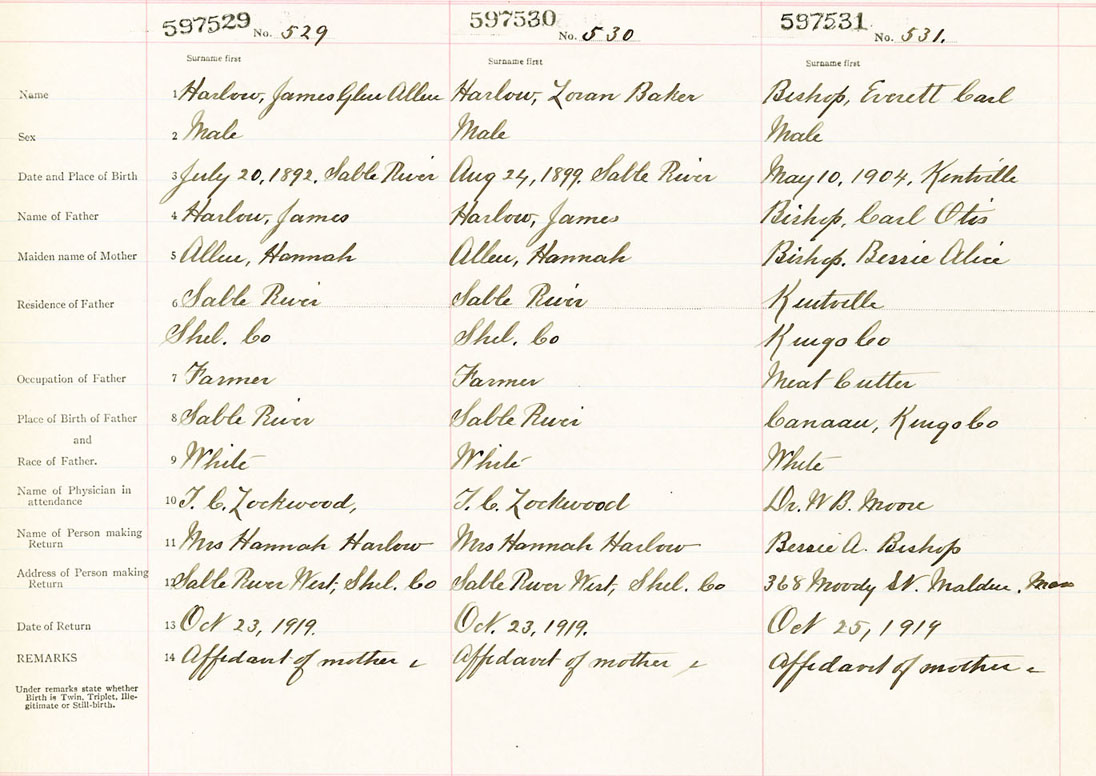 597529 No. 529 597530 No. 530 597531 No. 531.
Surname first Surname first Surname first
Name 1 Harlow, James Glen Allen Harlow, Loran Baker Bishop, Everett Carl
Sex 2 Male Male Male
Date and Place of Birth 3 July 20, 1892. Sable River Aug 24, 1899. Sable River May 10, 1904, Kentville
Name of Father 4 Harlow, James Harlow, James Bishop, Carl Otis
Maiden name of Mother 5 Allen, Hannah Allen, Hannah Bishop. Bessie Alice
Residence of Father 6 Sable River Sable River Kentville
Shel. Co Shel. Co Kings Co
Occupation of Father 7 Farmer Farmer Meat Cutter
Place of Birth of Father 8 Sable River Sable River Canaan, Kings Co
and
Race of Father. 9 White White White
Name of Physician in
attendance 10 T. C. Lockwood, T. C. Lockwood Dr. W B. Moore
Name of Person making
Return 11 Mrs Hannah Harlow Mrs Hannah Harlow Bessie A. Bishop
Address of Person making
Return 12 Sable River West, Shel. Co Sable River West, Shel. Co 368 Moody St. Malden. Mass
Date of Return 13 Oct 23, 1919. Oct. 23, 1919. Oct 25, 1919
REMARKS 14 Affidavit of mother Affidavit of mother Affidavit of mother
Under remarks state whether
Birth is Twin, Triplet, Ille-
gitimate or Still-birth.